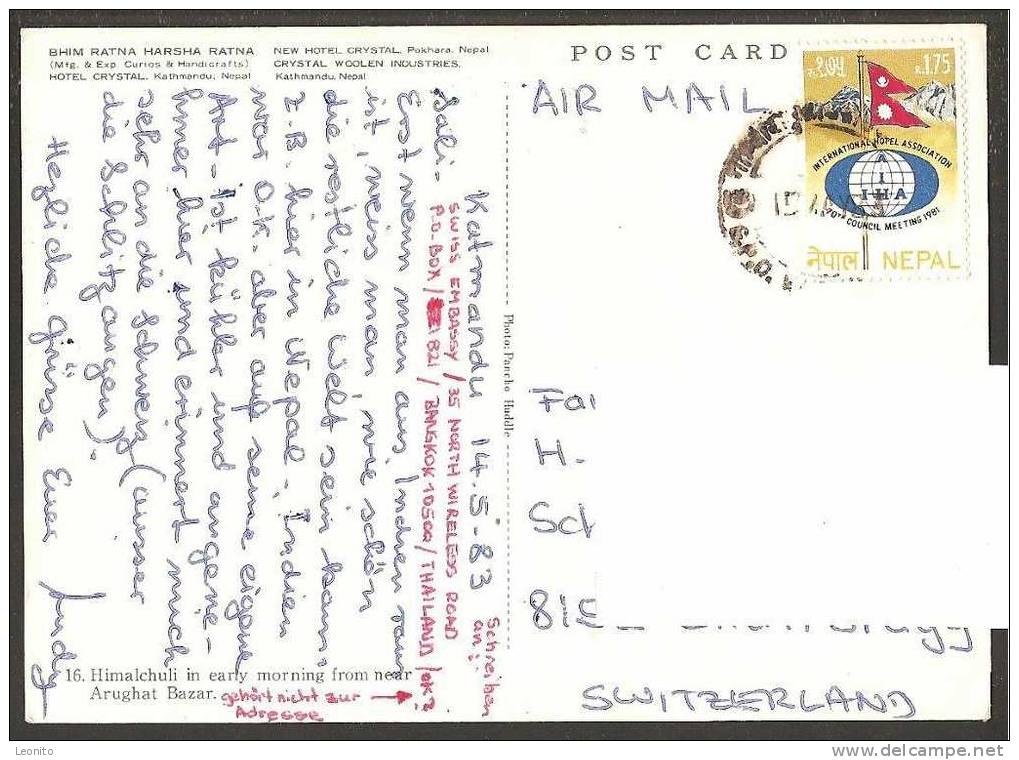 BHIM RATNA HARSHA RATNA
(Mfg. & Exp. Curios & Handicrafts)
HOTEL CRYSTAL, Kathmandu, Nepal
NEW HOTEL CRYSTAL, Pokhara, Nepal
CRYSTAL WOOLEN INDUSTRIES,
Kathmandu, Nepal
POST CARD
AIR MAIL
रु.१.७५
R.1.75
INTERNATIONAL HOTEL ASSOCIATION
A
I
IHA
&70TH COUNCIL MEETING 1981
नेपाल NEPAL
G.P.O.
Katmandu 14.5-83
Sali-
SWISS EMBASSY / 35 NORTH WIRELESS ROAD
P.O. BOX / 821 / BANGKOK 10500 / THAILAND / ok?
Schreiben
an:
Erst wenn man aus Indien raus
ist, weiss man, wie schön
die restliche Welt sein kann.
z.B. hier in Nepal. Indien
war o.k. aber auf seine eigene
Art - Ist kühler und angene-
hmer hier und erinnert mich
sehr an die Schweiz (ausser
die Schlitzaugen).
Hezliche Grüsse Euer
gehört nicht zur
Adresse
Photo: Pancho Huddle
16. Himalchuli in early morning from near
Arughat Bazar.
Fa
H.
Sc
81
SWITZERLAND
Leonito
www.delcampe.net